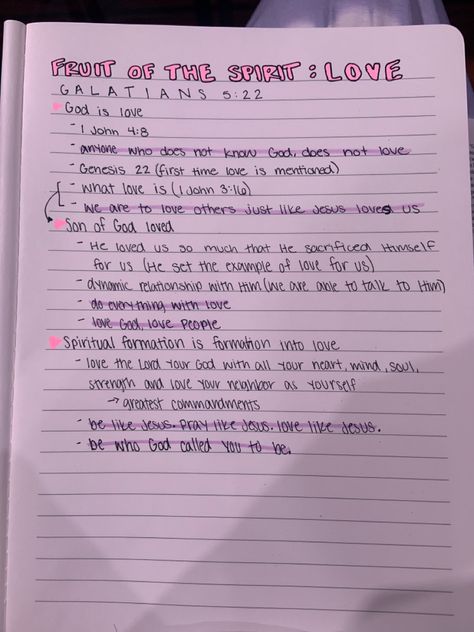 FRUIT OF THE SPIRIT: LOVE
GALATIANS 5:22
God is love
- 1 John 4:8
- anyone who does not know God, does not love
- Genesis 22 (first time love is mentioned)
- what love is (1 John 3:16)
- we are to love others just like Jesus loves us
Son of God loved
- He loved us so much that He sacrificed Himself
for us (He set the example of love for us)
- dynamic relationship with Him (we are able to talk to Him)
- do everything with love
- love God, love people
Spiritual formation is formation into love
- love the Lord your God with all your heart, mind, soul,
strength and love your neighbor as yourself
→ greatest commandments
- be like Jesus. pray like Jesus. love like Jesus.
- be who God called you to be.